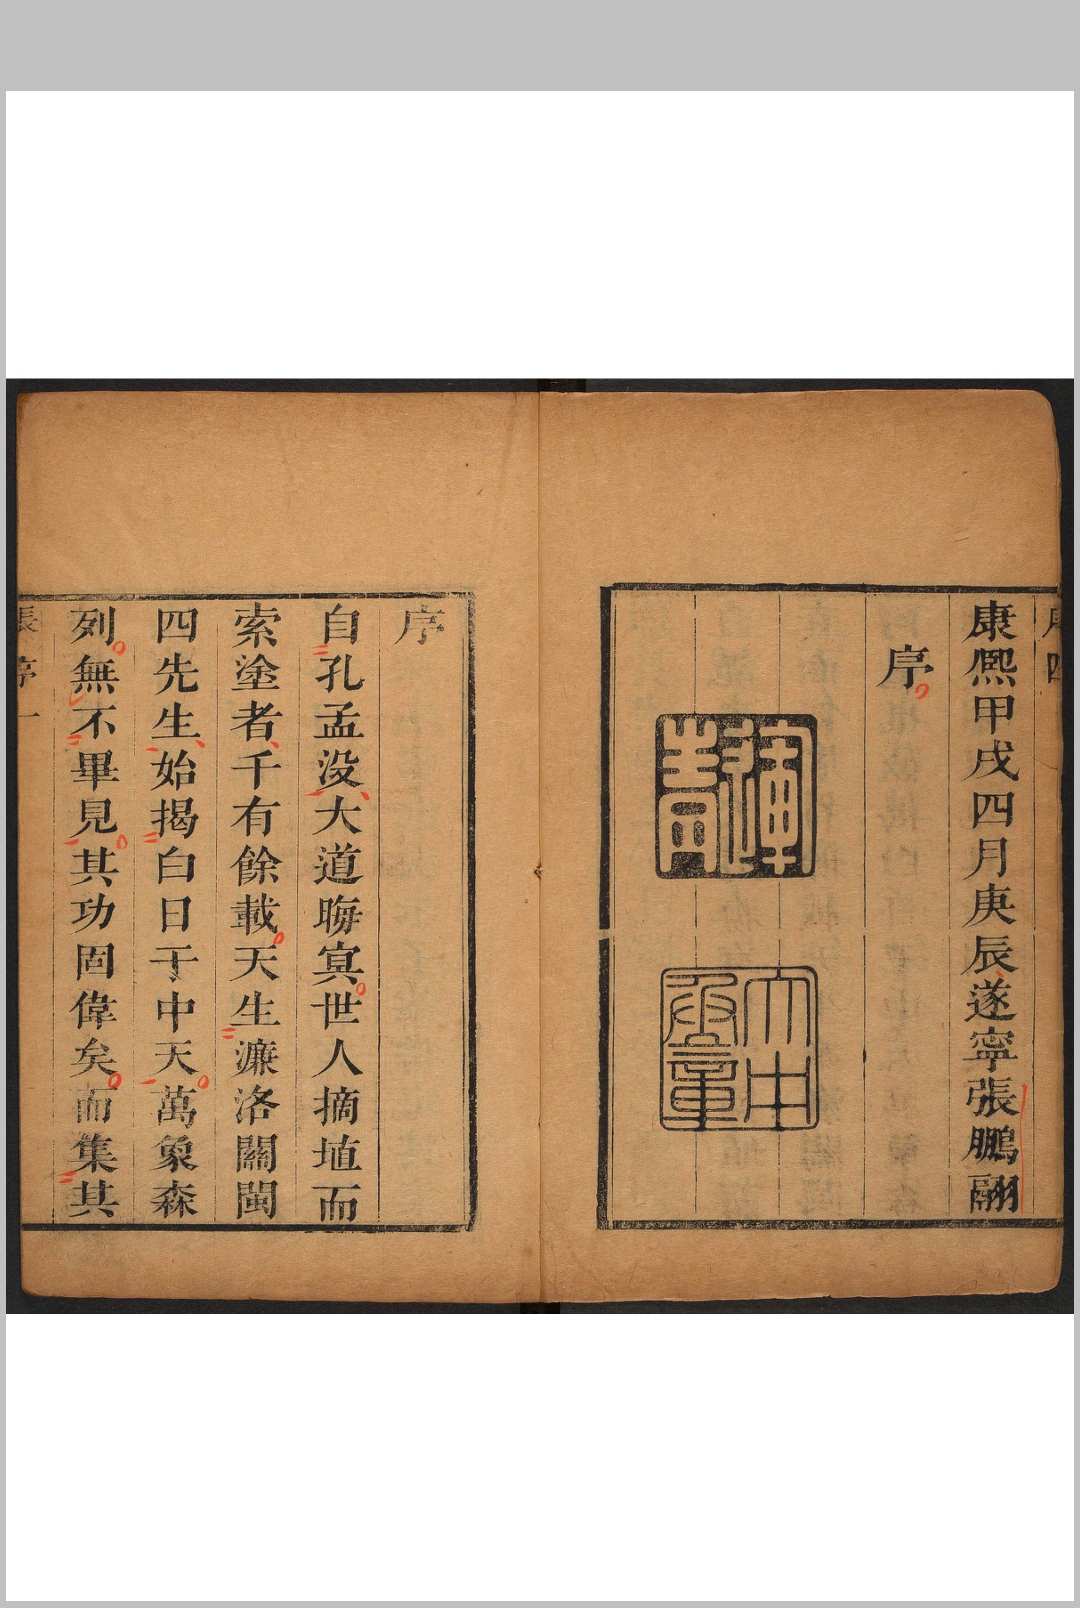 康熙甲戌四月庚辰遂寧張鵬翮
序
序
自孔孟没大道晦冥世人摘埴而
索塗者千有餘載天生濂洛關閩
四先生始揭白日于中天萬象森
列無不畢見其功固偉矣而集其
張序 一